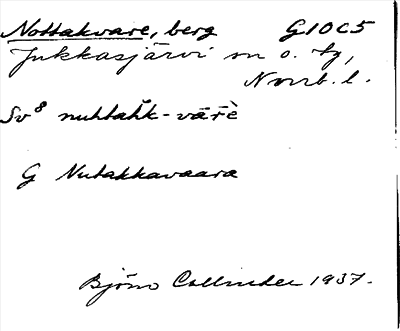 Nottakvare, berg G10C5
Jukkasjärvi sn o. tg,
Norrb. l.
Sv⁸ nuhtahk-vārè
G Nutakkavaara
Björn Collinder 1937.